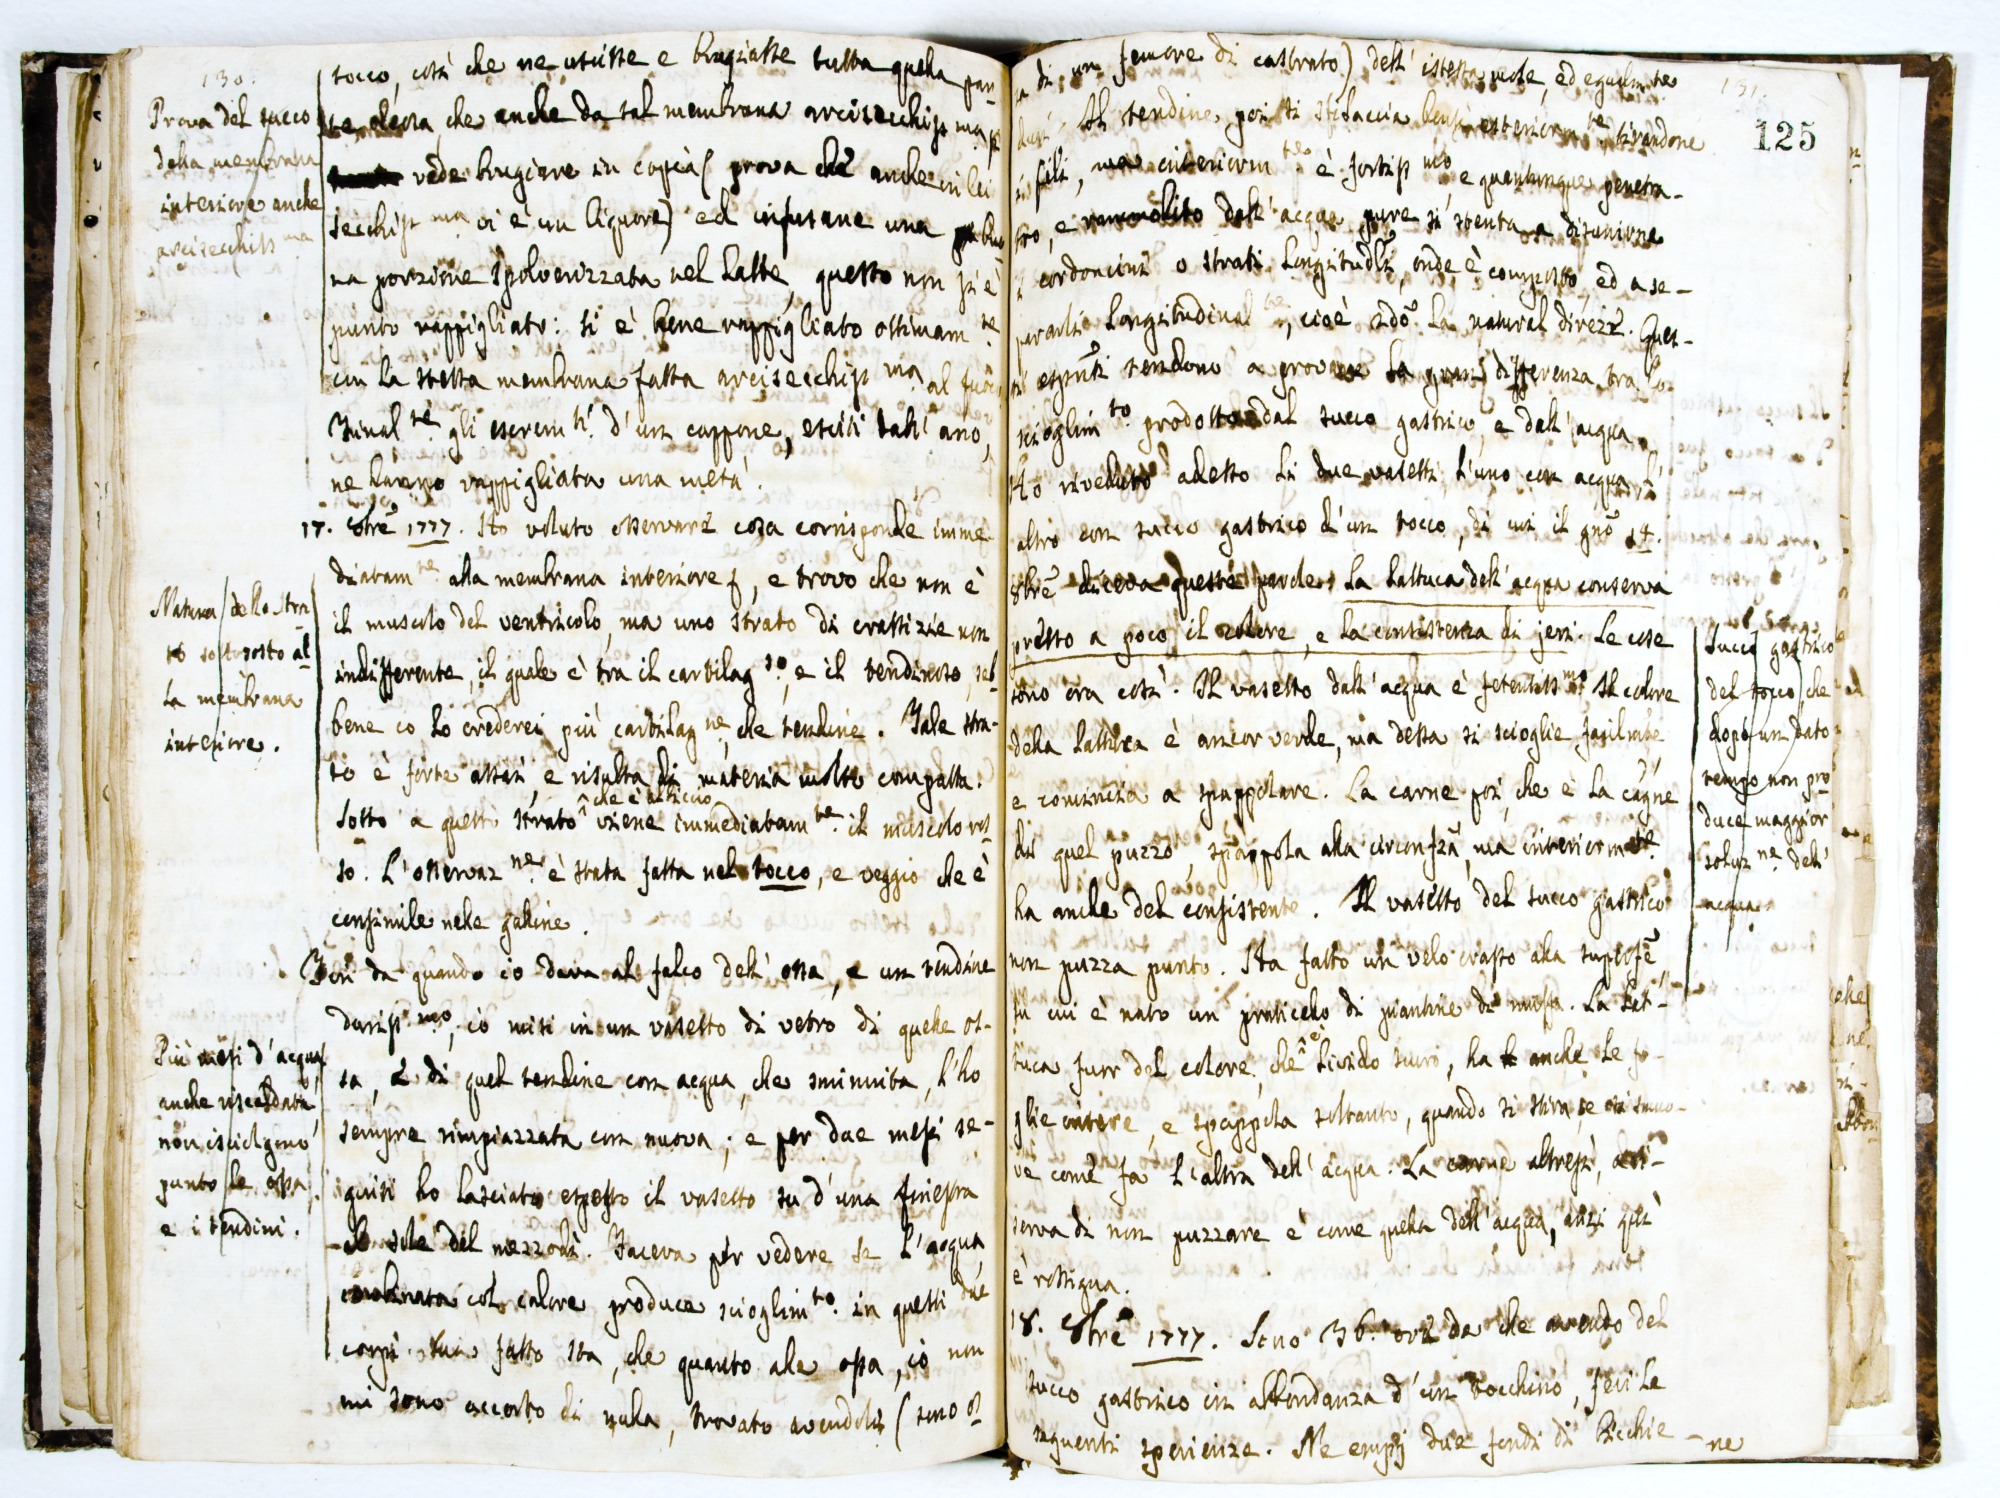 130.
Prova del succo
della membrana
interiore anche
arcisecchiss ma
tocco, così che ne uscisse e bruciasse tutta quella par-
te oleosa, che anche da tal membrana arcisecchiss ma si
vede brugiare in copia (prova che anche in lei
secchiss ma vi è un liquore) ed infusane una buo
na porzione spolverizzata nel latte, questo non si è
punto rappigliato: si è bene rappigliato ottimam te
con la stessa membrana fatta arcisecchiss ma al fuo
Final te gli escrem ti d'un cappone, esciti dall' ano,
ne hanno rappigliata una metà.
17. 8bre 1777. Ho voluto osservare cosa corrisponde imme-
diatam te alla membrana interiore, e trovo che non è
il muscolo del ventricolo, ma uno strato di crassizie non
indifferente, il quale è tra il cartilag so, e il tendinoso, seb-
bene io lo crederei più cartilag ne, che tendine. Tale stra-
to è forte assai, e risulta di materia molto compatta.
Sotto a questo strato che è albiccio viene immediatam te il muscolo ros-
so. L'osservaz ne è stata fatta nel tocco, e veggio che è
consimile nelle galine.
Natura dello stra-
to sottoposto al-
la membrana
interiore.
Fin da quando io dava al falco dell' ossa, e un tendine
duriss mo, io misi in un vasetto di vetro di quelle os-
sa, e di quel tendine con acqua, che sminuita, l'ho
sempre rimpiazzata con nuova; e per due mesi se-
guiti ho lasciato esposto il vasetto su d'una finestra
al sole del mezzodì. Faceva per vedere se l'acqua
combinata col calore produce scioglim to in questi due
corpi. Sua fatto sta, che quanto alle ossa, io non
mi sono accorto di nulla, trovato avendole (sono os-
Più mesi d'acqua,
anche riscaldata,
non isciolgono
punto le ossa,
e i tendini.
131.
125
sa di un femore di castrato) dell' istessa mole, ed egualm te
duri. Il tendine poi si sfilaccia bensì esteriorm te, tirandone
i fili, ma interiorm te è fortiss mo e quantunque penetra-
to, e rammolito dall' acqua pure si stenta a disunirne
i cordoncini o strati longitudli, onde è composto, ed a se-
pararli longitudinal te, cioè 2do la natural direz. Ques-
ti esprti tendono a provar la gran differenza tra lo
scioglim to prodotto dal succo gastrico, e dall' acqua.
Ho riveduto adesso li due vasetti l'uno con acqua, l'
altro con succo gastrico d'un tocco, di cui il gno 14.
8bre diceva queste parole: La lattuca dell' acqua conserva
presso a poco il colore, e la consistenza di jeri. Le cose
sono ora così. Il vasetto dall' acqua è fetentiss mo. Il colore
della lattuca è ancor verde, ma dessa si scioglie facilmte
e comincia a spappolare. La carne poi, che è la cagne
di quel puzzo, spappola alla circonfza, ma interiormte
ha anche del consistente. Il vasetto del succo gastrico
non puzza punto. Ha fatto un velo crasso alla superfe
su cui è nato un praticello di piantine di muffa. La lat-
tuca fuor del colore, che è livido scuro, ha anche le fo-
glie intere, e spappola soltanto, quando si stira, e si smuo-
ve come fa l'altra dell' acqua. La carne altresì, os-
serva di non puzzare è come quella dell' acqua, anzi qui
è rossigna.
18. 8bre 1777. Sono 36. ore da che avendo del
succo gastrico in abbondanza d'un tocchino, feci le
seguenti sperienze. Ne empj due fondi di bicchie-
-ne
Succo gastrico
del tocco, che
dopo un dato
tempo non pro-
duce maggior
soluz ne dell'
acqua.